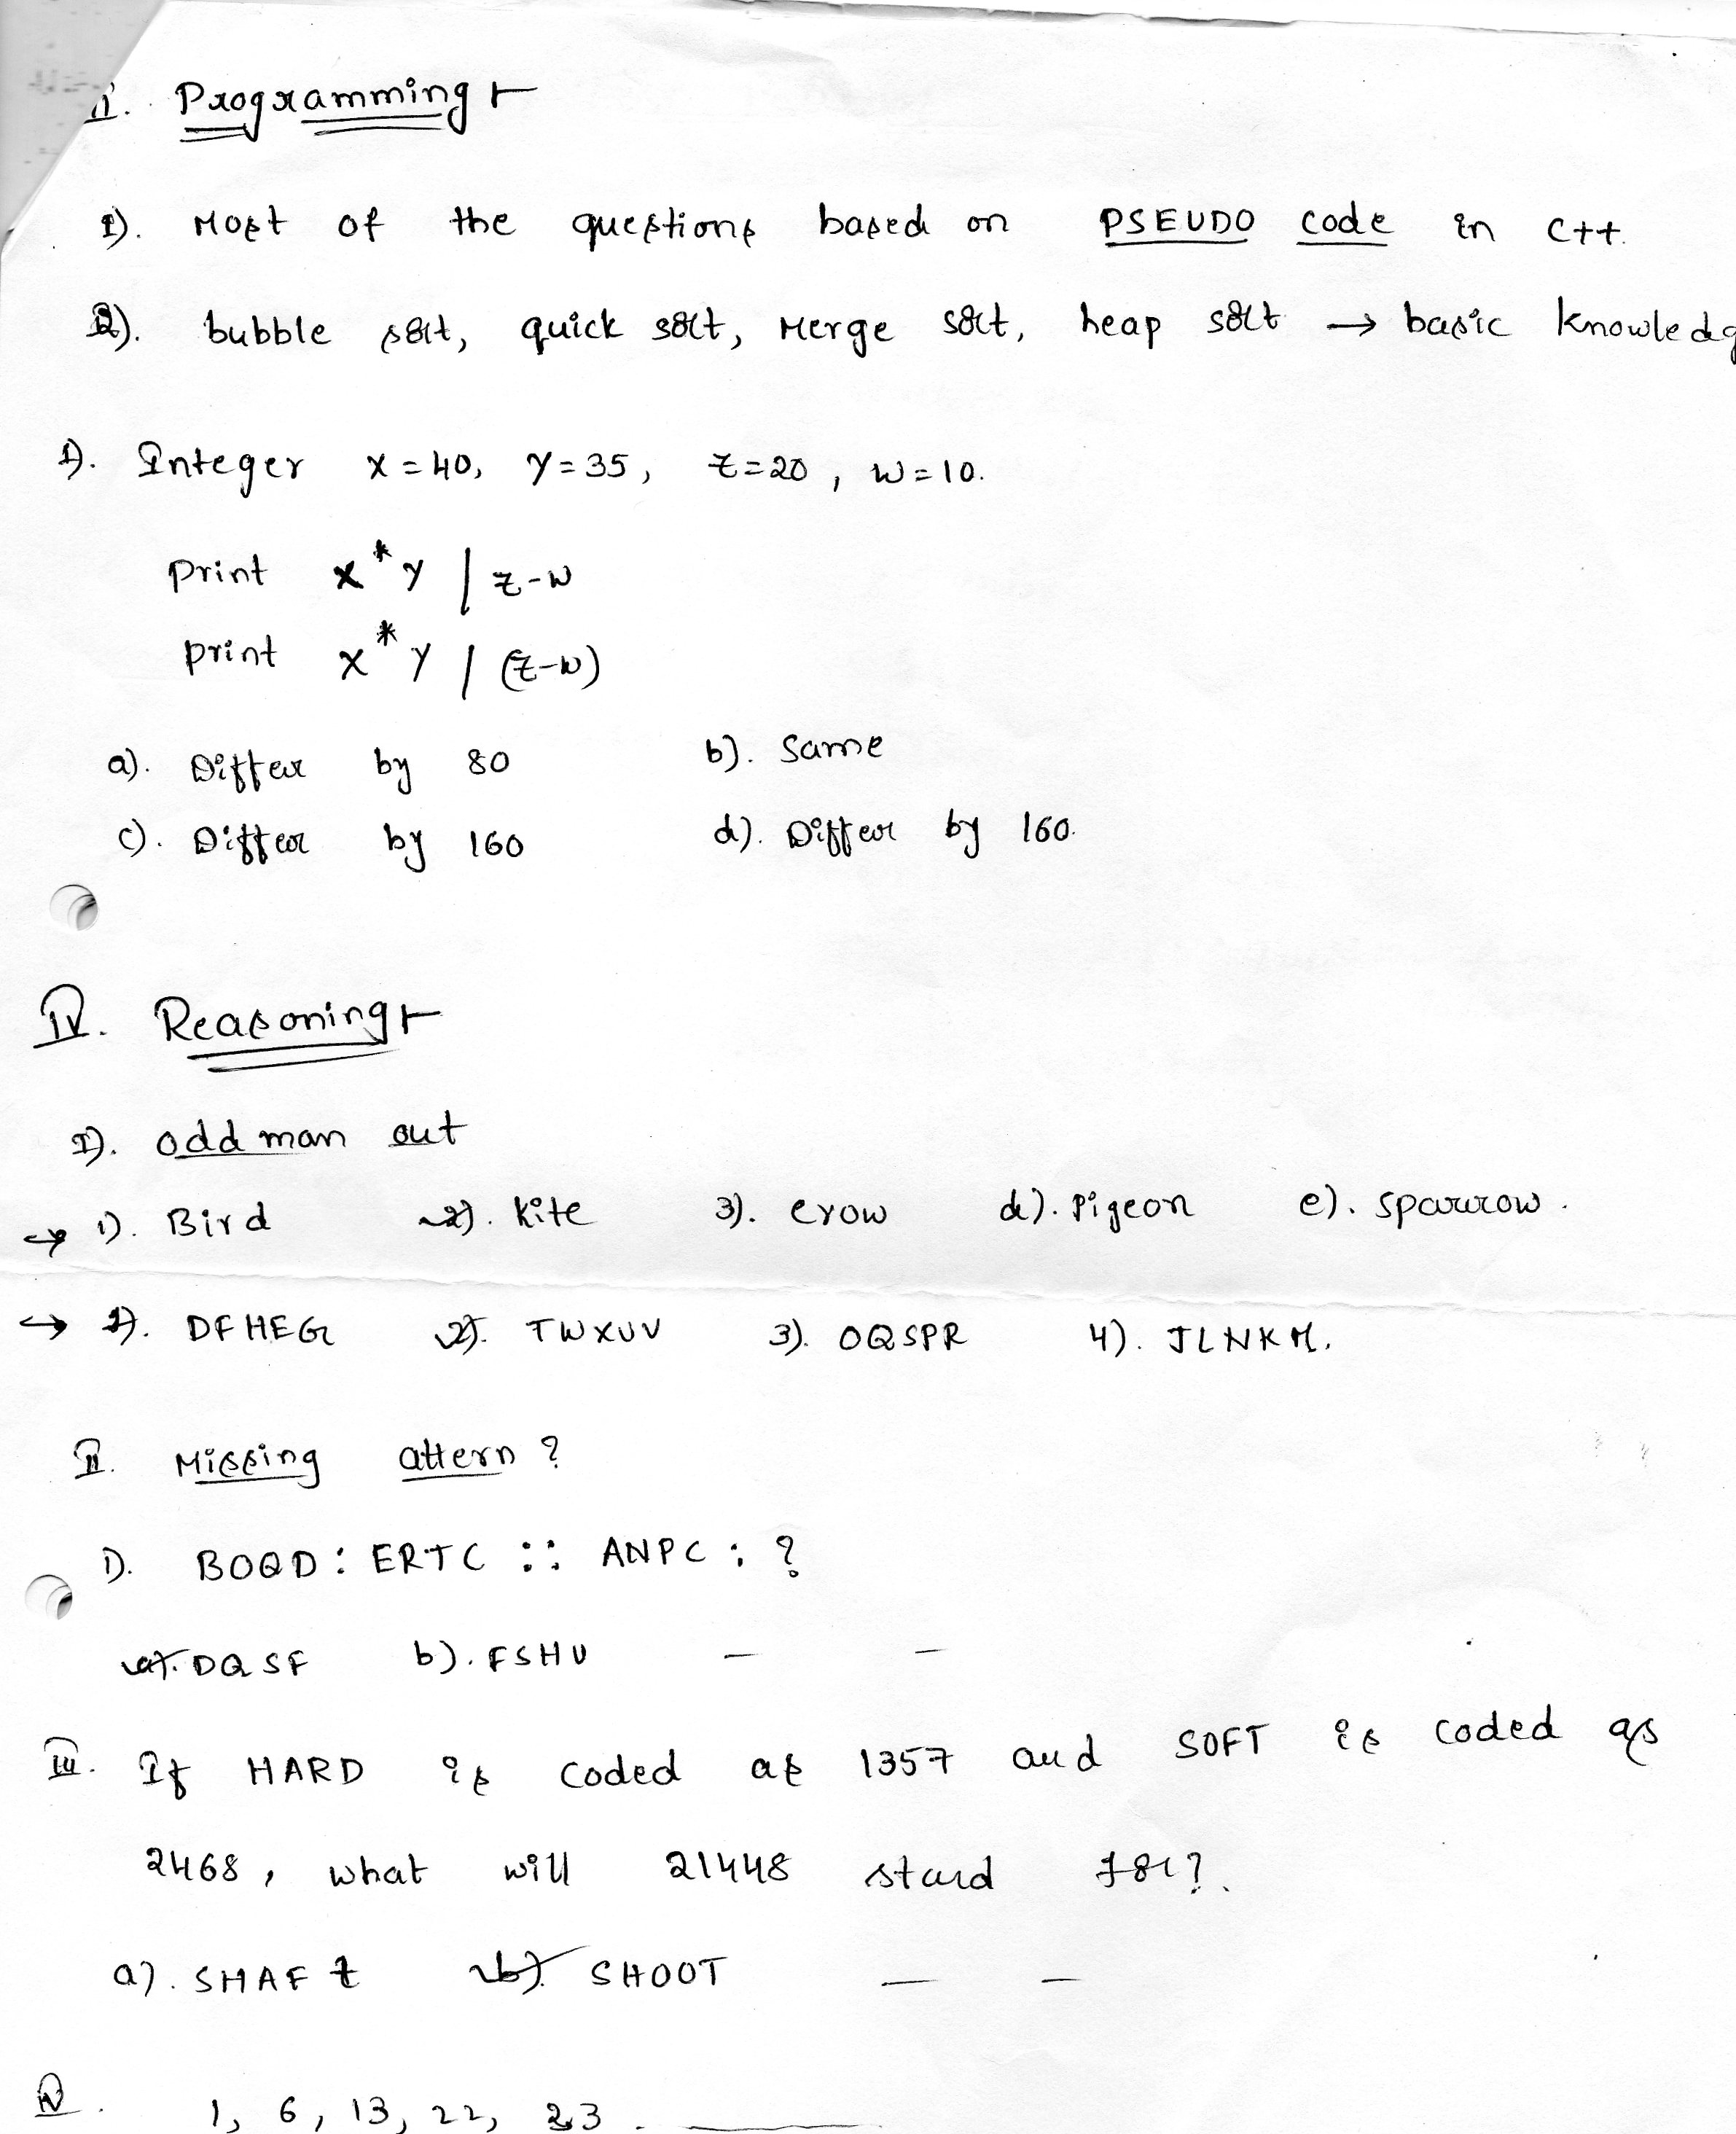 II. Programming :-
1). Most of the questions based on PSEUDO code in C++.
2). bubble sort, quick sort, Merge sort, heap sort → basic knowledg
1). Integer X = 40, Y = 35, Z = 20, W = 10.
Print X * Y / Z-W
Print X * Y / (Z-W)
a). Differ by 80 b). Same
c). Differ by 160 d). Differ by 160.
IV. Reasoning :-
I). odd man out
→ 1). Bird 2). Kite 3). crow d). Pigeon e). sparrow.
→ 2). DFHEG 2). TWXUV 3). OQSPR 4). JLNKM.
II. Missing attern ?
1). BOQD : ERTC :: ANPC : ?
a). DQSF b). FSHU — —
III. If HARD is coded as 1357 and SOFT is coded as
2468, what will 21448 stand for?.
a). SHAFt b). SHOOT — —
IV. 1, 6, 13, 22, 23. ______